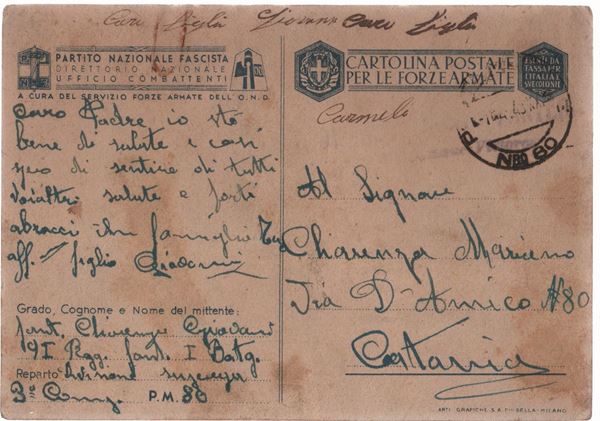 Caro Figlio Giovanni Caro Figlio
PARTITO NAZIONALE FASCISTA
DIRETTORIO NAZIONALE
UFFICIO COMBATTENTI
A CURA DEL SERVIZIO FORZE ARMATE DELL'O.N.D.
Caro Padre io sto
bene di salute e cosi
spero di sentire di tutti
voialtri salute e forti
abracci in famiglia Tuo
aff. figlio Giovanni
Grado, Cognome e Nome del mittente:
fant. Chiarenza Giovanni
91 Regg. fant. I Batg.
Reparto Divisione
3ª Comp. P.M. 80
CARTOLINA POSTALE
PER LE FORZE ARMATE
ESENTE DA
TASSA PER
L'ITALIA E
SUE COLONIE
Carmelo
N 80
Al Signore
Chiarenza Mariano
Via D'Amico N 80
Catania
ARTI GRAFICHE S.A. MILANO